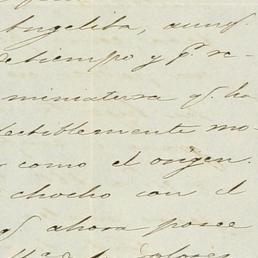 Angelita, aunq̃
tiempo y pr. re-
miniatura q. ha
ectiblemente mo-
como el origen.
chocho con el
q. ahora posee